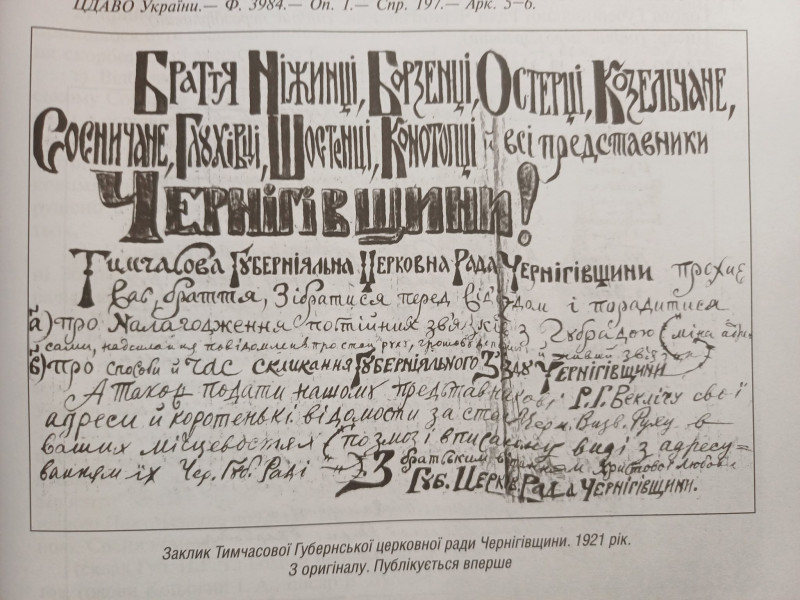 ЦДАВО України.— Ф. 3984.— Оп. 1.— Спр. 197.— Арк. 5–6.
Браття Ніжинці, Борзенці, Остерці, Козельчане,
Сосничане, Глухівці, Шостенці, Конотопці й всі представники
Чернігівщини!
Тимчасова Губерніяльна Церковна Рада Чернігівщини прохає
вас, браття, зібратися перед від'їздом і порадитися
а) про налагодження постійних звязків з Губрадою (міна адре-
сами, надсилання повідомлень про стан руху,
б) про спосіб й час скликання Губерніяльного З'їзду Чернігівщини
А також подати нашому представникові Г.Г. Веклічу свої
адреси й коротенькі відомости за стан Церк. Визв. Руху в
ваших місцевостях (по змозі в писаному виді з адресу=
ванням їх Чер. Губ. Раді). З братським вітанням Христової Любови
Губ. Церков. Рада Чернігівщини.
Заклик Тимчасової Губернської церковної ради Чернігівщини. 1921 рік.
З оригіналу. Публікується вперше